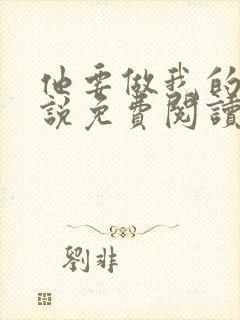 他要做我的
說免費閱讀
劉非